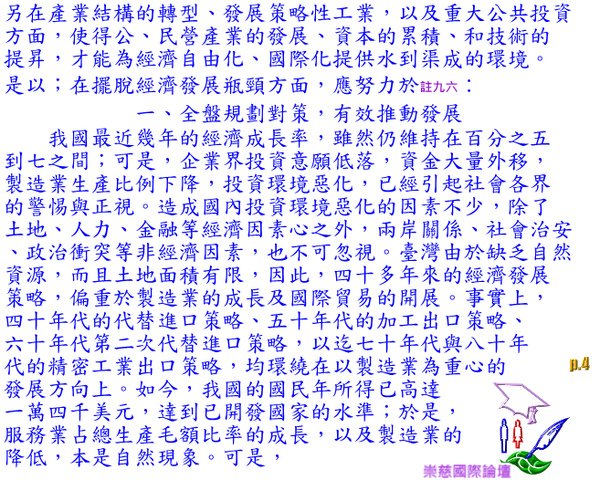 另在產業結構的轉型、發展策略性工業，以及重大公共投資
方面，使得公、民營產業的發展、資本的累積、和技術的
提昇，才能為經濟自由化、國際化提供水到渠成的環境。
是以；在擺脫經濟發展瓶頸方面，應努力於註九六：
一、全盤規劃對策，有效推動發展
我國最近幾年的經濟成長率，雖然仍維持在百分之五
到七之間；可是，企業界投資意願低落，資金大量外移，
製造業生產比例下降，投資環境惡化，已經引起社會各界
的警惕與正視。造成國內投資環境惡化的因素不少，除了
土地、人力、金融等經濟因素心之外，兩岸關係、社會治安
、政治衝突等非經濟因素，也不可忽視。臺灣由於缺乏自然
資源，而且土地面積有限，因此，四十多年來的經濟發展
策略，偏重於製造業的成長及國際貿易的開展。事實上，
四十年代的代替進口策略、五十年代的加工出口策略、
六十年代第二次代替進口策略，以迄七十年代與八十年
代的精密工業出口策略，均環繞在以製造業為重心的
發展方向上。如今，我國的國民年所得已高達
一萬四千美元，達到已開發國家的水準；於是，
服務業占總生產毛額比率的成長，以及製造業的
降低，本是自然現象。可是，
p.4
崇慈國際論壇